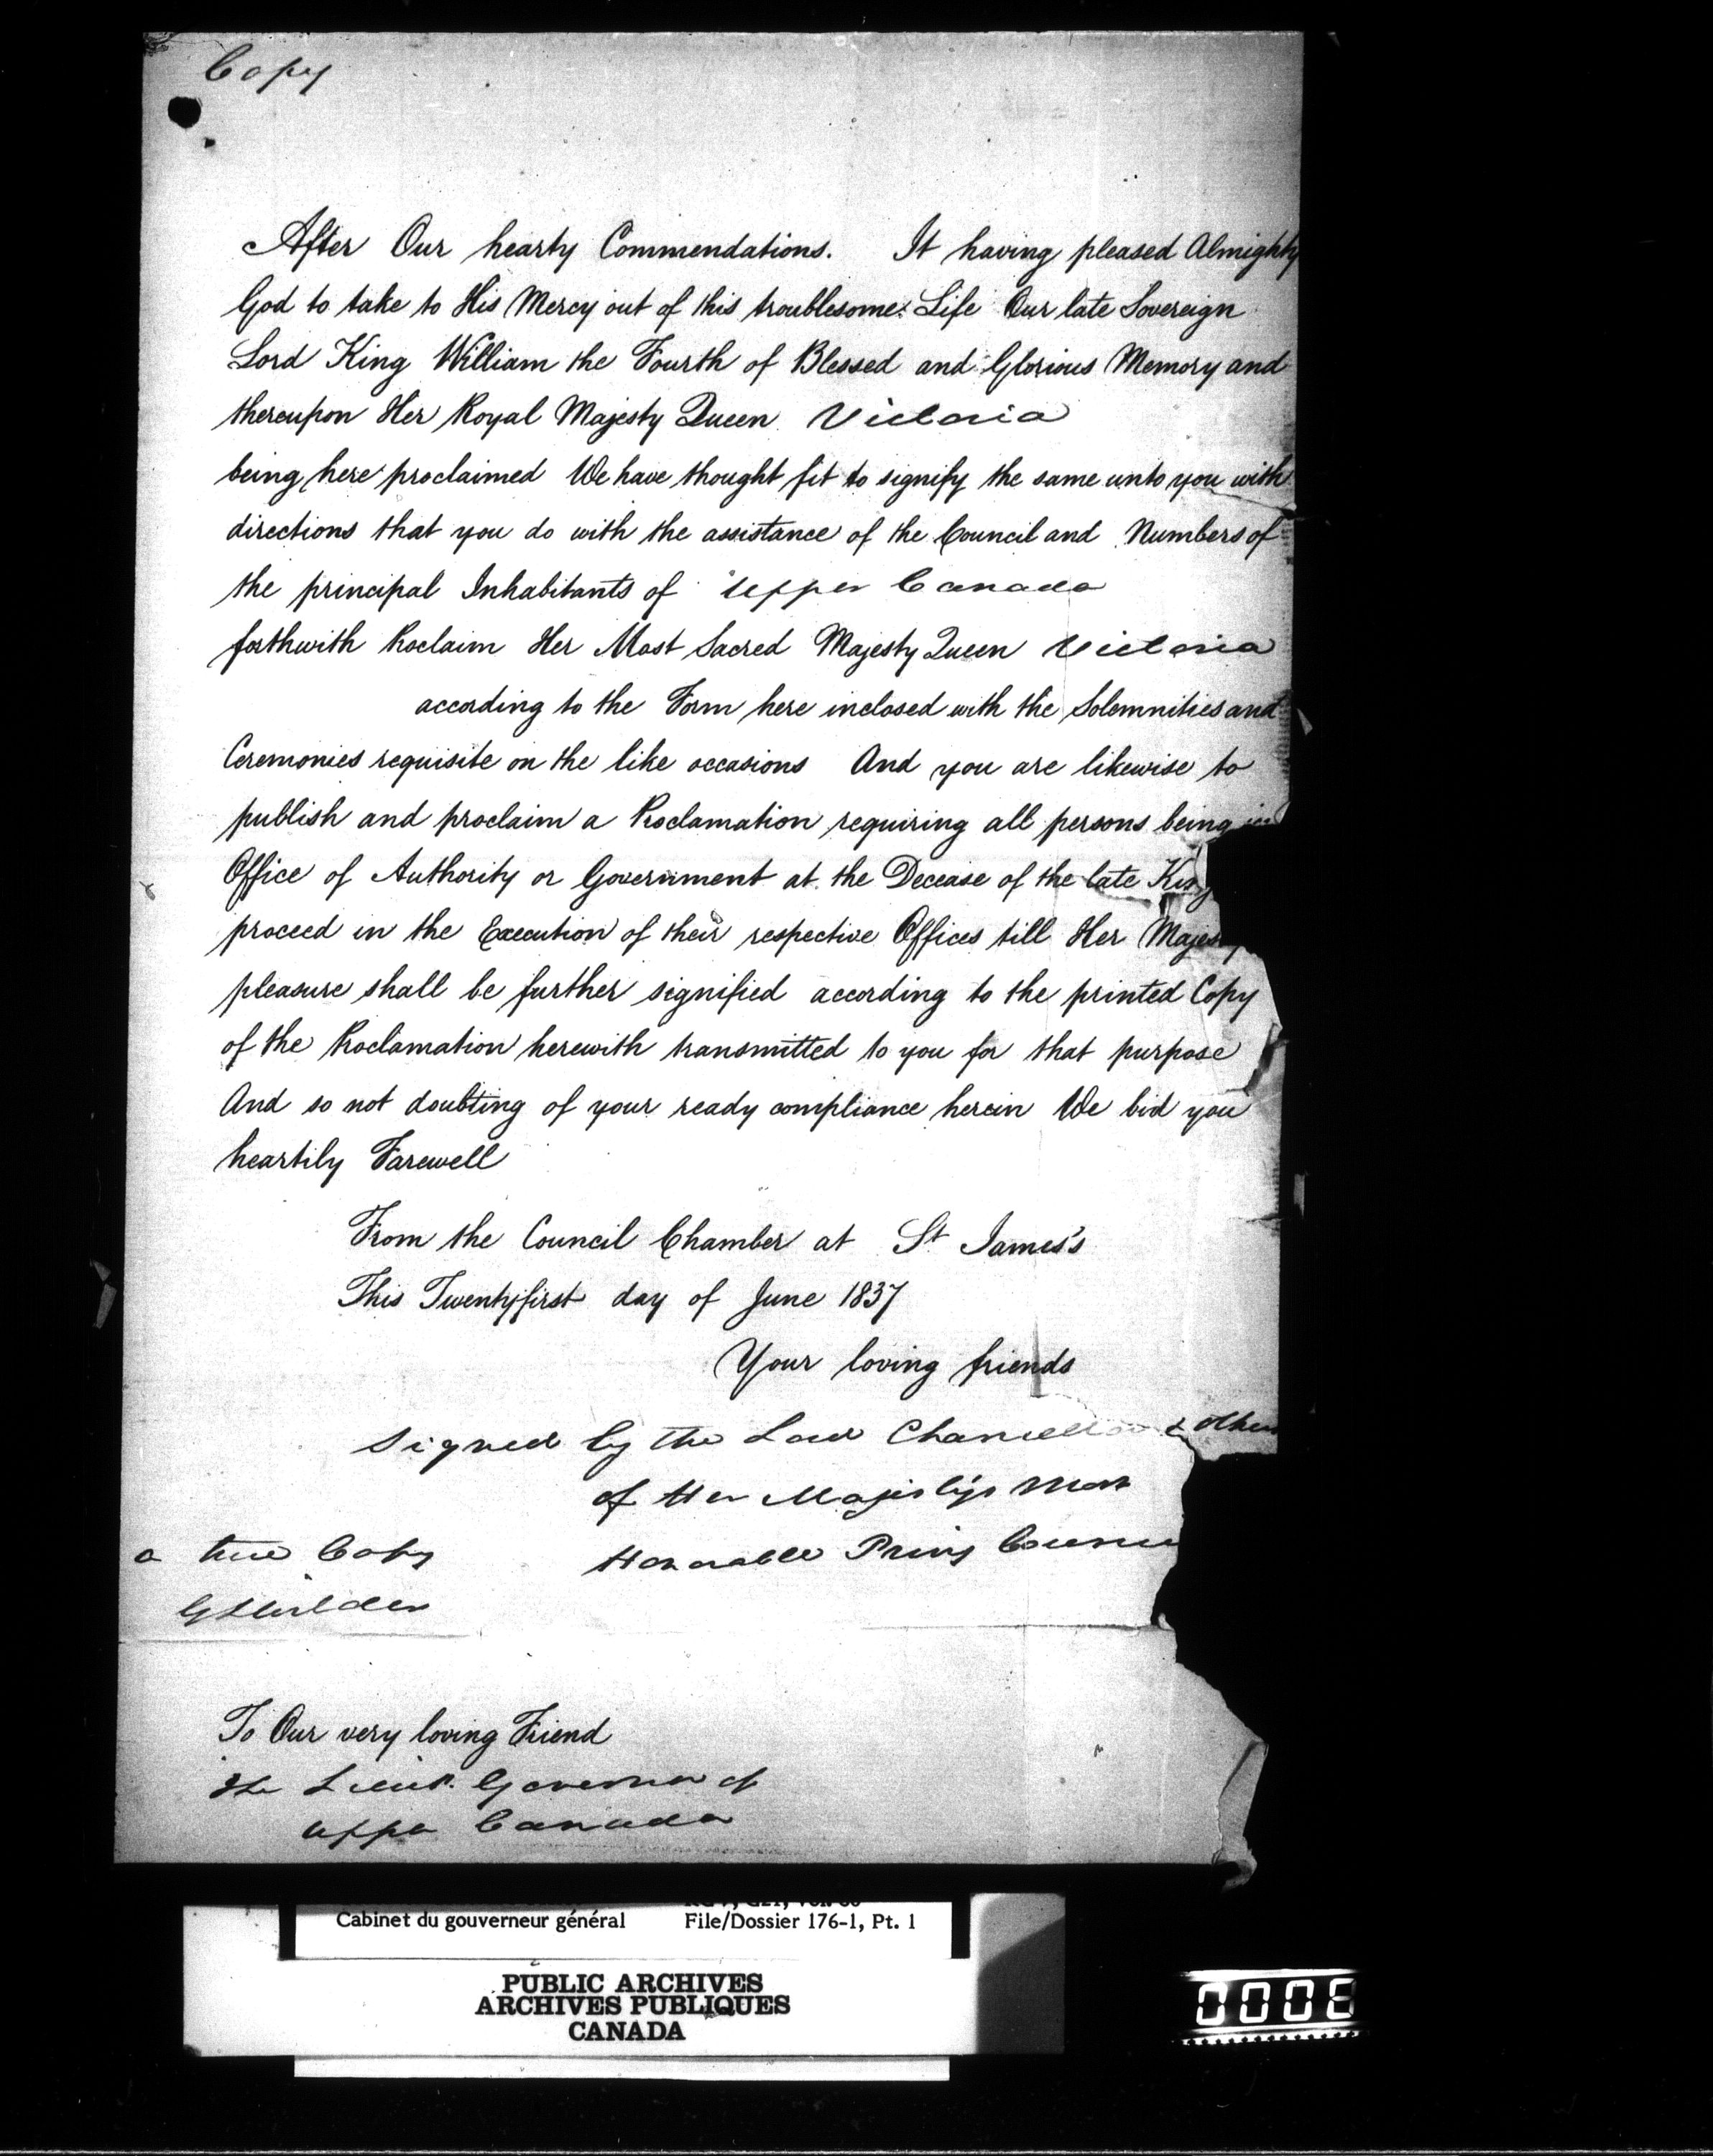 Copy
After Our hearty Commendations. It having pleased Almighty
God to take to His Mercy out of this troublesome Life Our late Sovereign
Lord King William the Fourth of Blessed and Glorious Memory and
thereupon Her Royal Majesty Queen Victoria
being here proclaimed We have thought fit to signify the same unto you with
directions that you do with the assistance of the Council and Numbers of
the principal Inhabitants of Upper Canada
forthwith Proclaim Her Most Sacred Majesty Queen Victoria
according to the Form here inclosed with the Solemnities and
Ceremonies requisite on the like occasions And you are likewise to
publish and proclaim a Proclamation requiring all persons being in
Office of Authority or Government at the Decease of the late King
proceed in the Execution of their respective Offices till Her Majesty
pleasure shall be further signified according to the printed Copy
of the Proclamation herewith transmitted to you for that purpose
And so not doubting of your ready compliance herein We bid you
heartily Farewell
From the Council Chamber at St James's
This Twentyfirst day of June 1837
Your loving friends
Signed by the Lord Chancellor & others
of Her Majesty's Most
Honorable Privy Council
a true Copy
To Our very loving Friend
The Lieut. Governor of
Upper Canada
Cabinet du gouverneur général File/Dossier 176-1, Pt. 1
PUBLIC ARCHIVES
ARCHIVES PUBLIQUES
CANADA